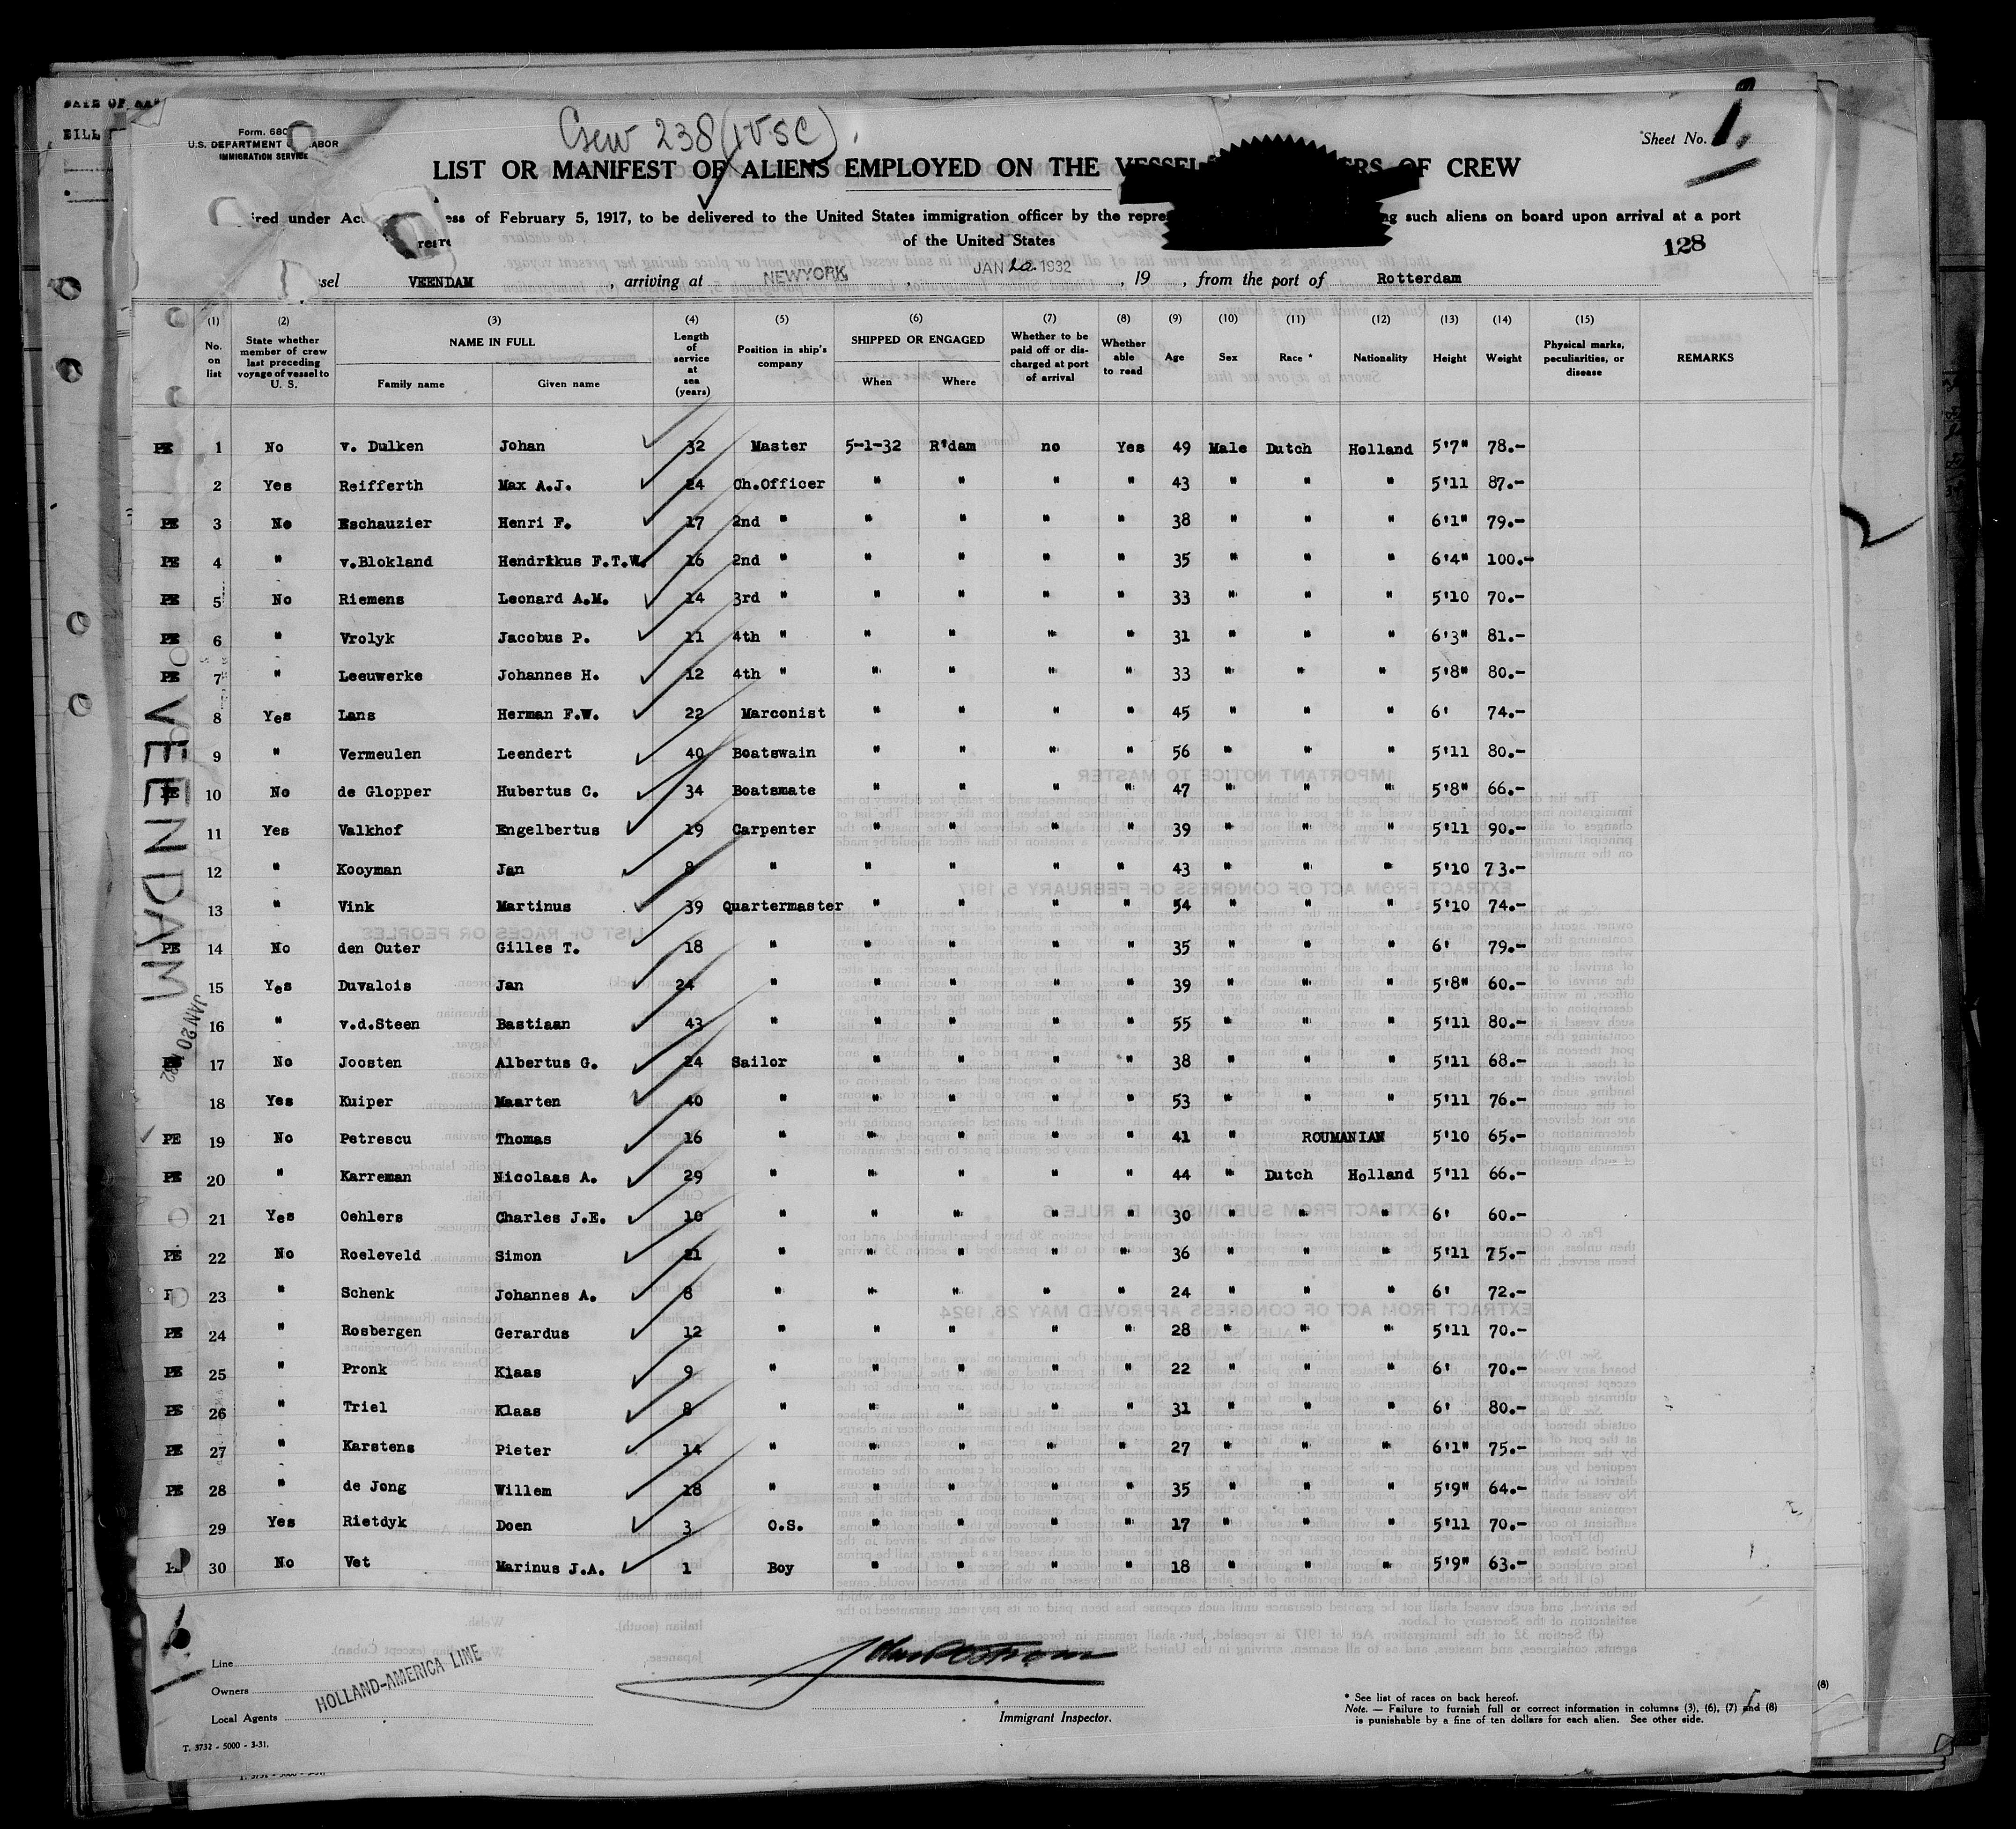 Crew 238 (1 USC).
Form. 680
U.S. DEPARTMENT LABOR
IMMIGRATION SERVICE
Sheet No. 1.
LIST OR MANIFEST OF ALIENS EMPLOYED ON THE VESSEL RS OF CREW
ired under Act ess of February 5, 1917, to be delivered to the United States immigration officer by the repre ng such aliens on board upon arrival at a port
of the United States
128
ssel VEENDAM, arriving at NEW YORK, JAN 20. 1932, 19 , from the port of Rotterdam
(1) No. on list (2) State whether member of crew last preceding voyage of vessel to U. S. (3) NAME IN FULL Family name Given name (4) Length of service at sea (years) (5) Position in ship's company (6) SHIPPED OR ENGAGED When Where (7) Whether to be paid off or discharged at port of arrival (8) Whether able to read (9) Age (10) Sex (11) Race * (12) Nationality (13) Height (14) Weight (15) Physical marks, peculiarities, or disease REMARKS
PE 1 No v. Dulken Johan 32 Master 5-1-32 R'dam no Yes 49 Male Dutch Holland 5'7" 78.-
2 Yes Reifferth Max A.J. 24 Ch.Officer " " " " 43 " " " 5'11 87.-
PE 3 No Eschauzier Henri F. 17 2nd " " " " " 38 " " " 6'1" 79.-
PE 4 " v.Blokland Hendrikus F.T.W. 16 2nd " " " " " 35 " " " 6'4" 100.-
PE 5 No Riemens Leonard A.M. 14 3rd " " " " " 33 " " " 5'10 70.-
PE 6 " Vrolyk Jacobus P. 11 4th " " " " " 31 " " " 6'3" 81.-
PE 7 " Leeuwerke Johannes H. 12 4th " " " " " 33 " " " 5'8" 80.-
8 Yes Lans Herman F.W. 22 Marconist " " " " 45 " " " 6' 74.-
9 " Vermeulen Leendert 40 Boatswain " " " " 56 " " " 5'11 80.-
PE 10 No de Glopper Hubertus C. 34 Boatsmate " " " " 47 " " " 5'8" 66.-
11 Yes Valkhof Engelbertus 19 Carpenter " " " " 39 " " " 5'11 90.-
12 " Kooyman Jan 8 " " " " " 43 " " " 5'10 73.-
13 " Vink Martinus 39 Quartermaster " " " " 54 " " " 5'10 74.-
PE 14 No den Outer Gilles T. 18 " " " " " 35 " " " 6' 79.-
15 Yes Duvalois Jan 24 " " " " " 39 " " " 5'8" 60.-
16 " v.d.Steen Bastiaan 43 " " " " " 55 " " " 5'11 80.-
17 No Joosten Albertus G. 24 Sailor " " " " 38 " " " 5'11 68.-
18 Yes Kuiper Maarten 40 " " " " " 53 " " " 5'11 76.-
PE 19 No Petrescu Thomas 16 " " " " " 41 " ROUMANIAN 5'10 65.-
PE 20 " Karreman Nicolaas A. 29 " " " " " 44 " Dutch Holland 5'11 66.-
21 Yes Oehlers Charles J.E. 10 " " " " " 30 " " " 6' 60.-
PE 22 No Roeleveld Simon 21 " " " " " 36 " " " 5'11 75.-
23 " Schenk Johannes A. 8 " " " " " 24 " " " 6' 72.-
PE 24 " Rosbergen Gerardus 12 " " " " " 28 " " " 5'11 70.-
PE 25 " Pronk Klaas 9 " " " " " 22 " " " 6' 70.-
PE 26 " Triel Klaas 8 " " " " " 31 " " " 6' 80.-
PE 27 " Karstens Pieter 14 " " " " " 27 " " " 6'1" 75.-
PE 28 " de Jong Willem 18 " " " " " 35 " " " 5'9" 64.-
29 Yes Rietdyk Doen 3 O.S. " " " " 17 " " " 5'11 70.-
30 No Vet Marinus J.A. 1 Boy " " " " 18 " " " 5'9" 63.-
VEENDAM
JAN 20 1932
Line
Owners
HOLLAND-AMERICA LINE
Local Agents
Immigrant Inspector.
* See list of races on back hereof.
Note. — Failure to furnish full or correct information in columns (3), (6), (7) and (8)
is punishable by a fine of ten dollars for each alien. See other side.
T. 3732 - 5000 - 3-31.